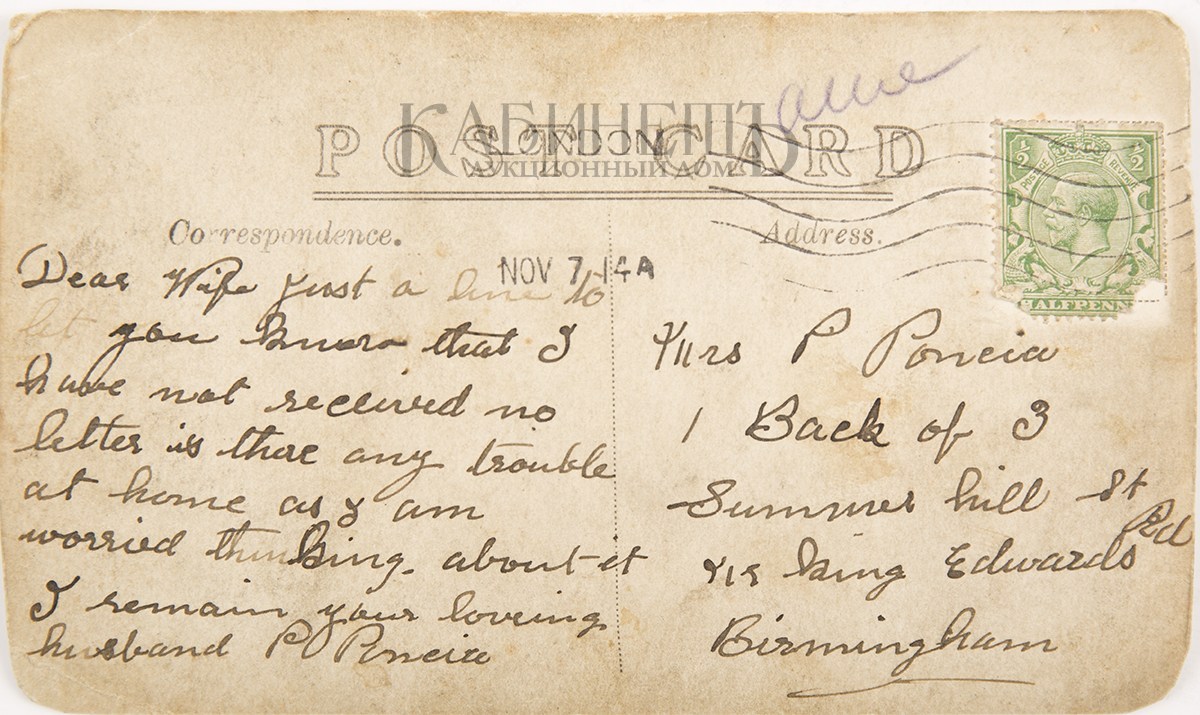 POST CARD
КАБИНЕТЪ
АУКЦИОННЫЙ ДОМ
LONDON
Anne
½ ½
POSTAGE REVENUE
HALFPENNY
Correspondence.
Address.
NOV 7 14 A
Dear Wife just a line to
let you know that I
have not received no
letter is thare any trouble
at home as I am
worried thinking about it
I remain your loveing
husband P Poncia
Mrs P Poncia
1 Back of 3
Summer hill St
Nr king Edwards Rd
Birmingham